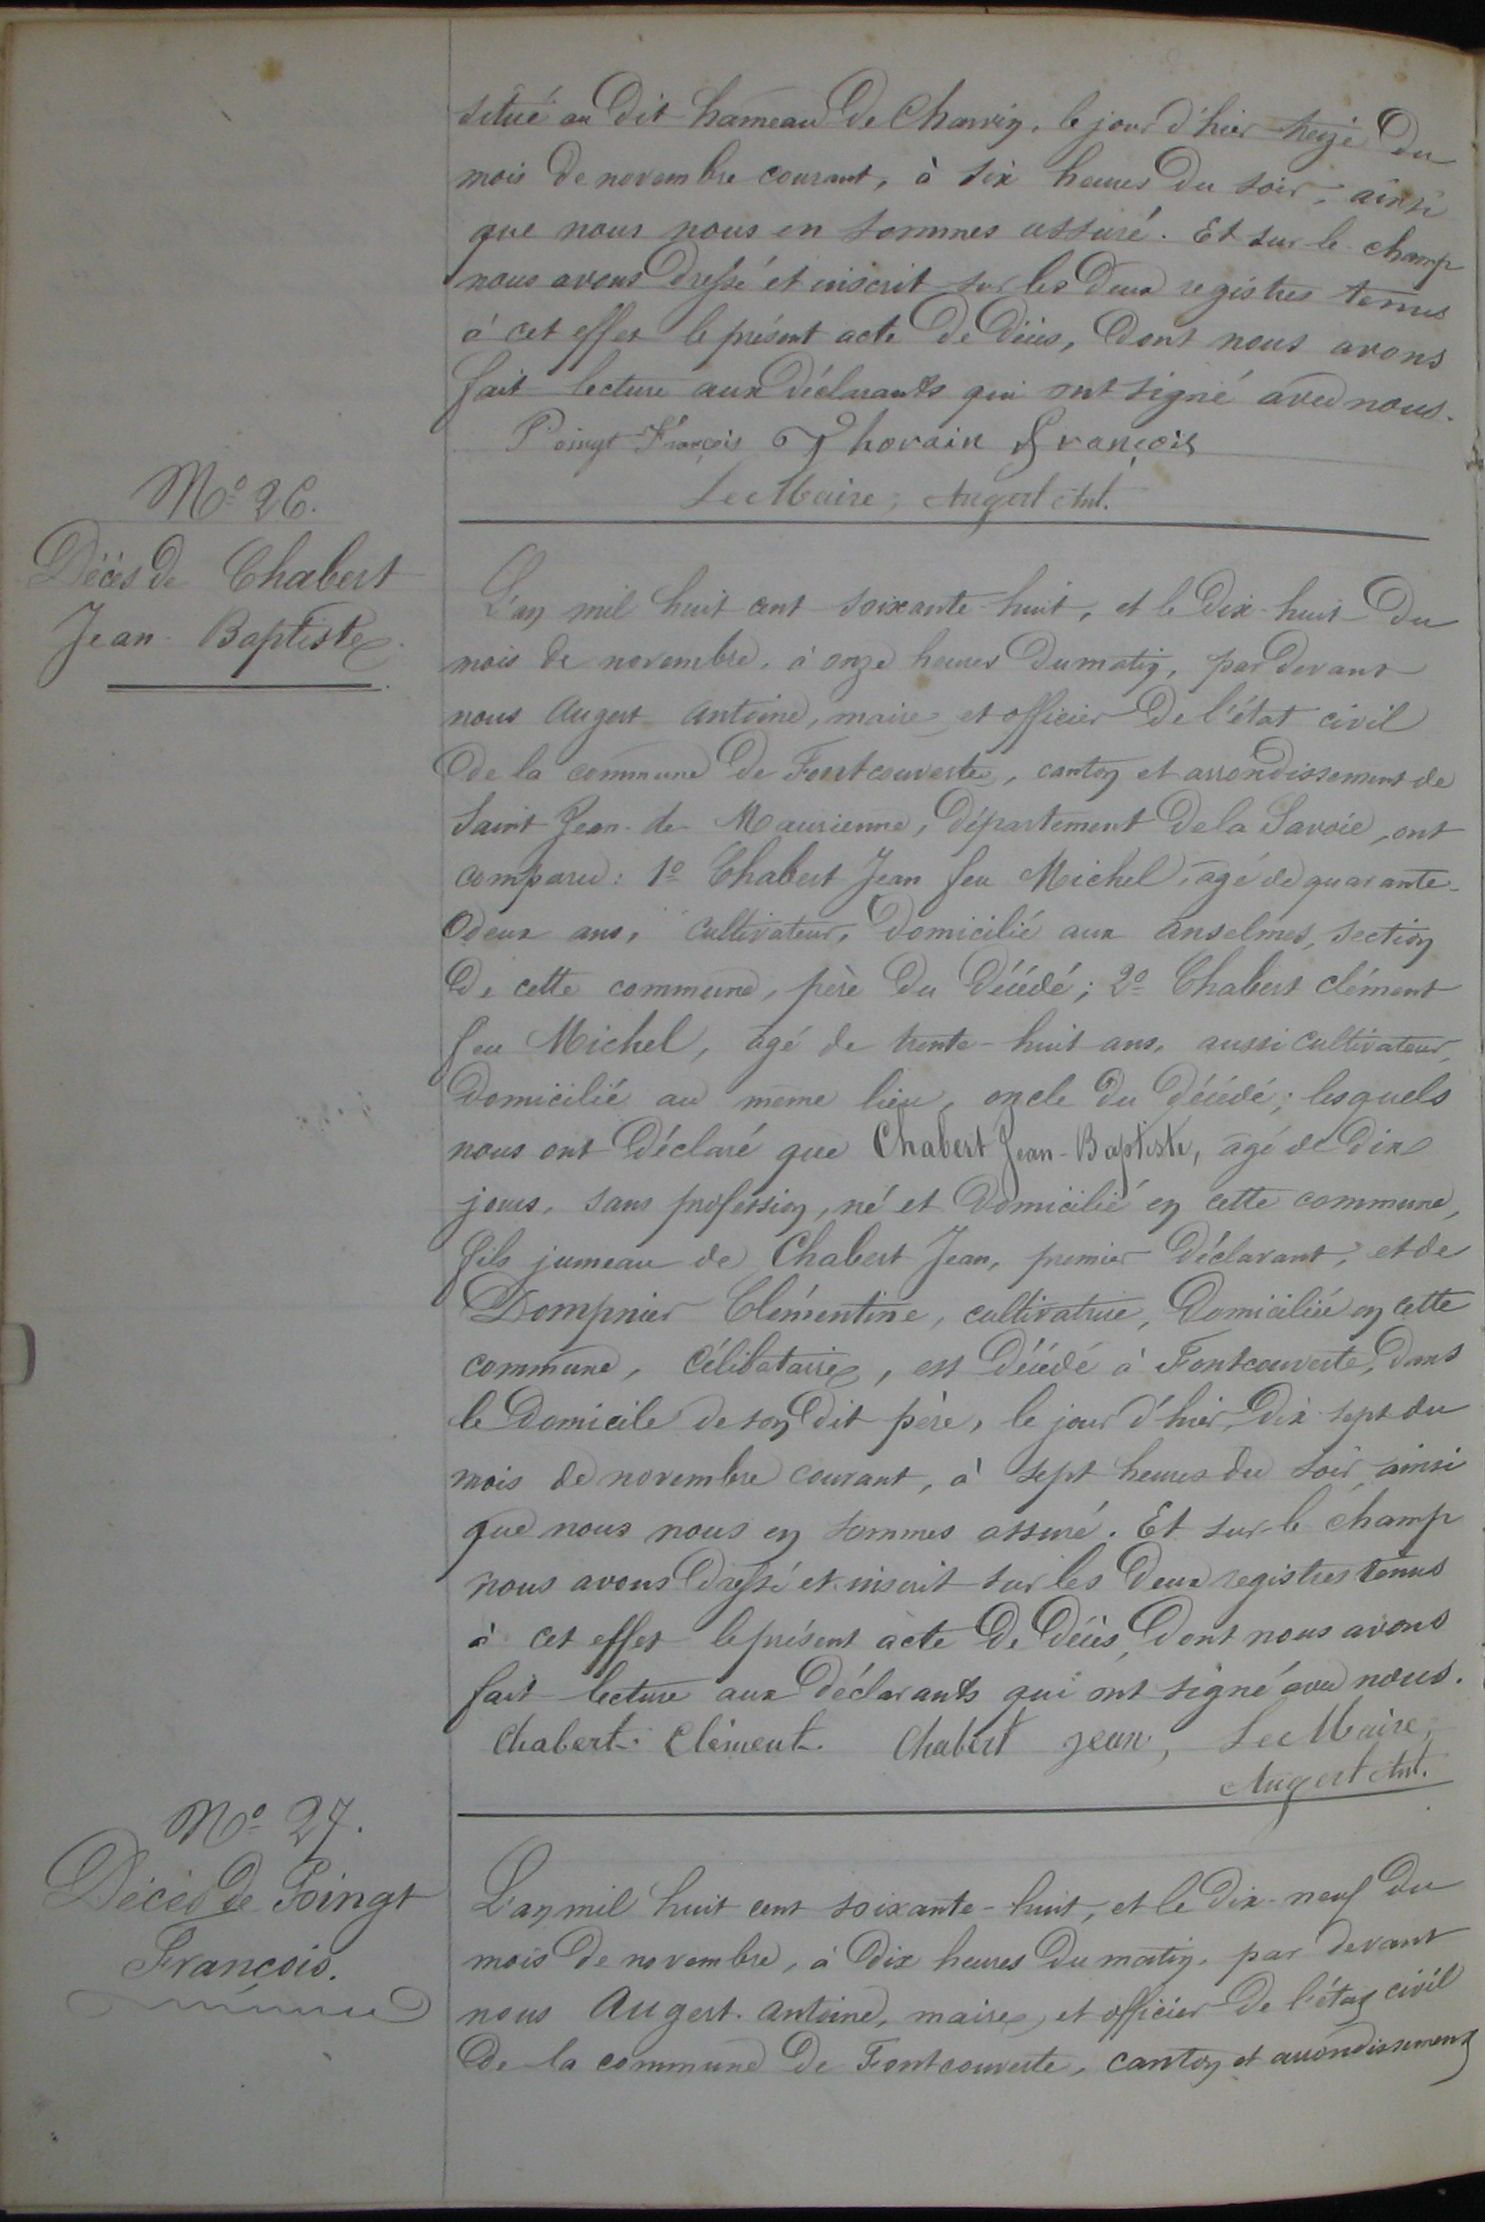 situé au dit hameau de Charvin, le jour d'hier treize du
mois de novembre courant, à six heures du soir, ainsi
que nous nous en sommes assuré. Et sur le champ
nous avons dressé et inscrit sur les deux registres tenus
à cet effet le présent acte de décès, dont nous avons
fait lecture aux déclarants qui ont signé avec nous.
Poingt François Thovain François
Le Maire, Augert Ant.
N.º 26.
Décès de Chabert
Jean-Baptiste
L'an mil huit cent soixante-huit, et le dix-huit du
mois de novembre, à onze heures du matin, par devant
nous Augert Antoine, maire et officier de l'état civil
de la commune de Fontcouverte, canton et arrondissement de
Saint Jean de Maurienne, département de la Savoie, ont
comparu: 1º Chabert Jean feu Michel, âgé de quarante-
deux ans, cultivateur, domicilié aux Anselmes, section
de cette commune, père du décédé; 2º Chabert Clément
feu Michel, âgé de trente-huit ans, aussi cultivateur,
domicilié au même lieu, oncle du décédé; lesquels
nous ont déclaré que Chabert Jean-Baptiste, âgé de dix
jours, sans profession, né et domicilié en cette commune,
fils jumeau de Chabert Jean, premier déclarant, et de
Dompnier Clémentine, cultivatrice, domiciliée en cette
commune, célibataire, est décédé à Fontcouverte, dans
le domicile de son dit père, le jour d'hier, dix-sept du
mois de novembre courant, à sept heures du soir, ainsi
que nous nous en sommes assuré. Et sur le champ
nous avons dressé et inscrit sur les deux registres tenus
à cet effet le présent acte de décès, dont nous avons
fait lecture aux déclarants qui ont signé avec nous.
Chabert Clément. Chabert Jean, Le Maire,
Augert Ant.
N.º 27.
Décès de Poingt
François.
L'an mil huit cent soixante-huit, et le dix-neuf du
mois de novembre, à dix heures du matin, par devant
nous Augert Antoine, maire et officier de l'état civil
de la commune de Fontcouverte, canton et arrondissement